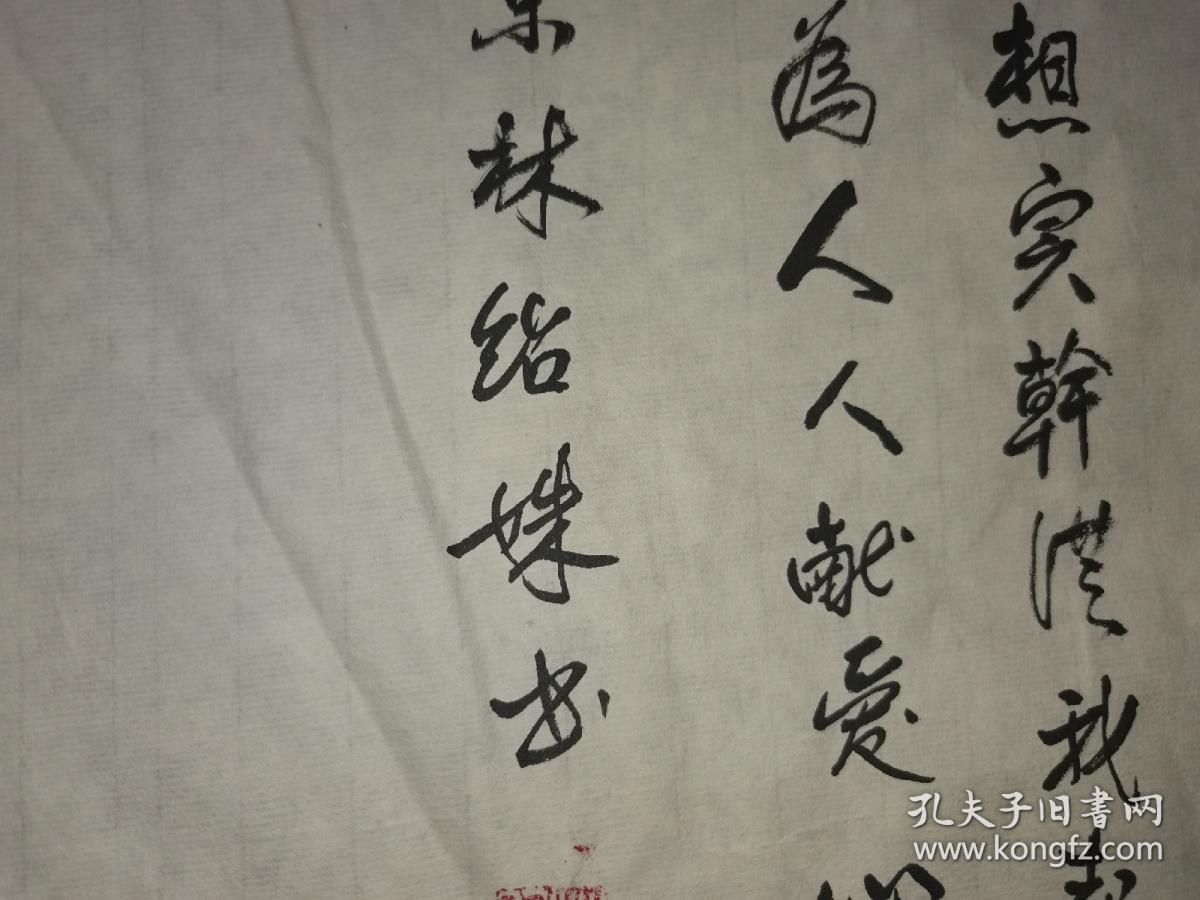 想實幹洪我
為人人獻愛
林绍姝书
孔夫子旧書网
www.kongfz.com